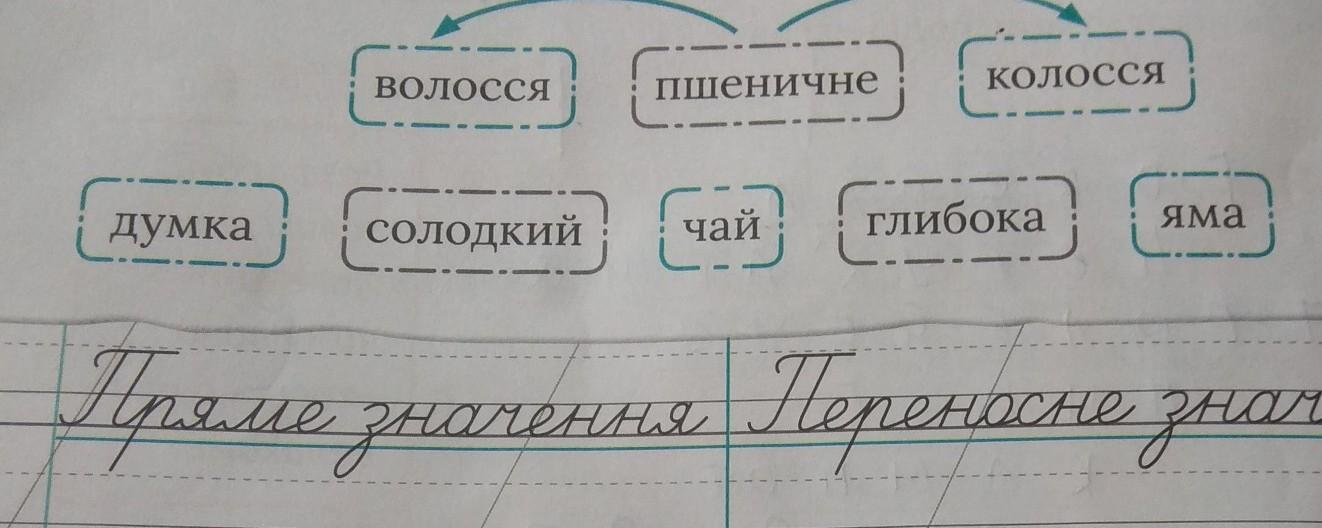 волосся пшеничне колосся
думка солодкий чай глибока яма
Пряме значення Переносне знач